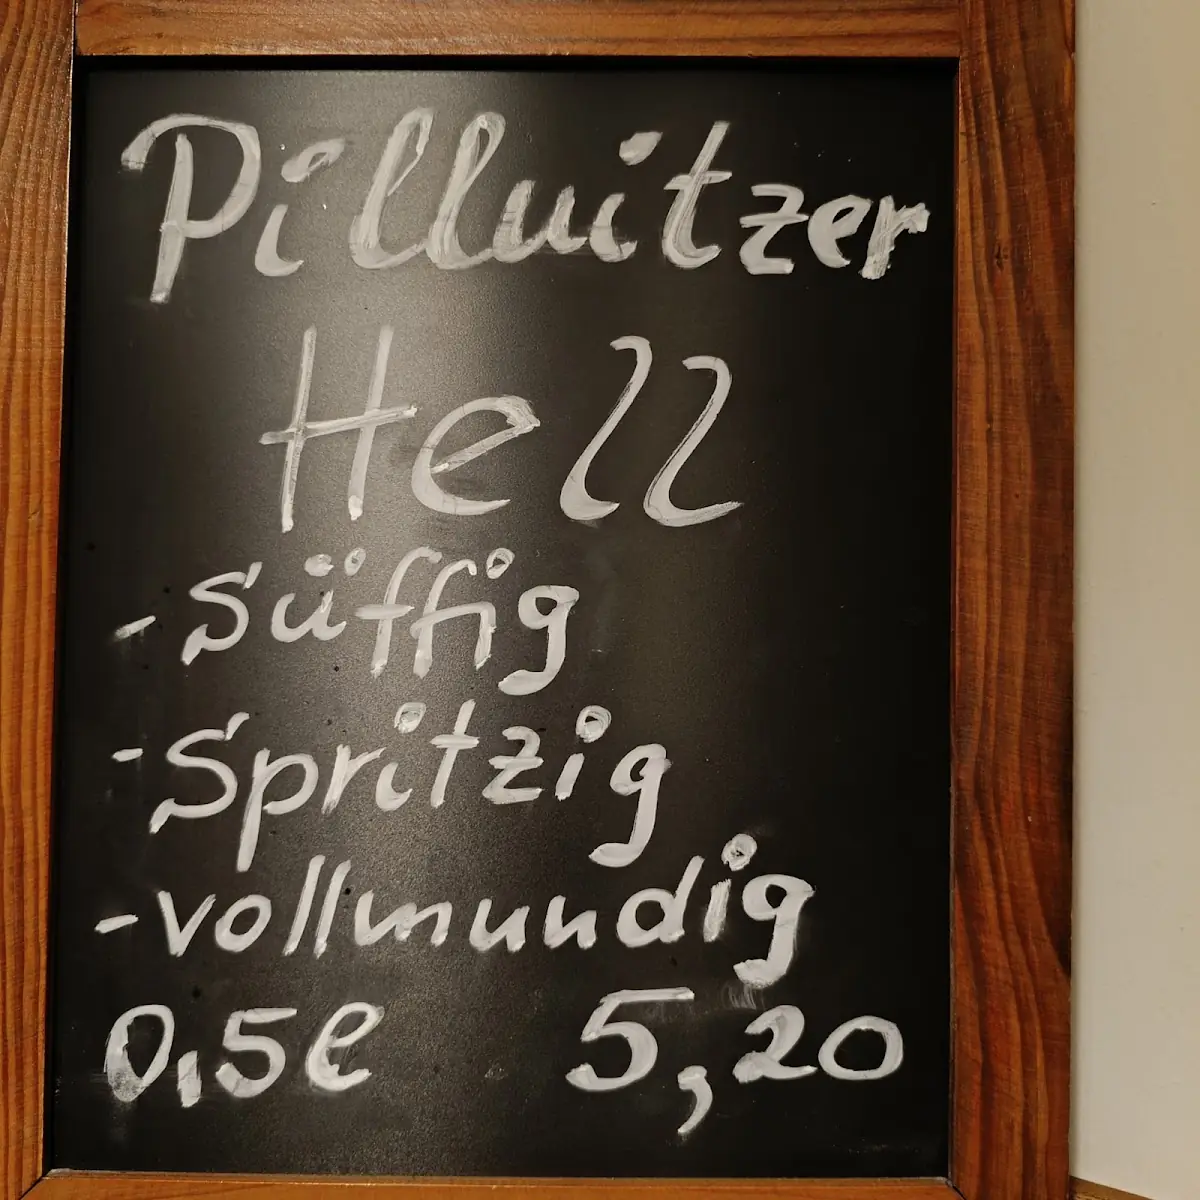 Pillnitzer
Hell
- Süffig
- Spritzig
- vollmundig
0,5l 5,20